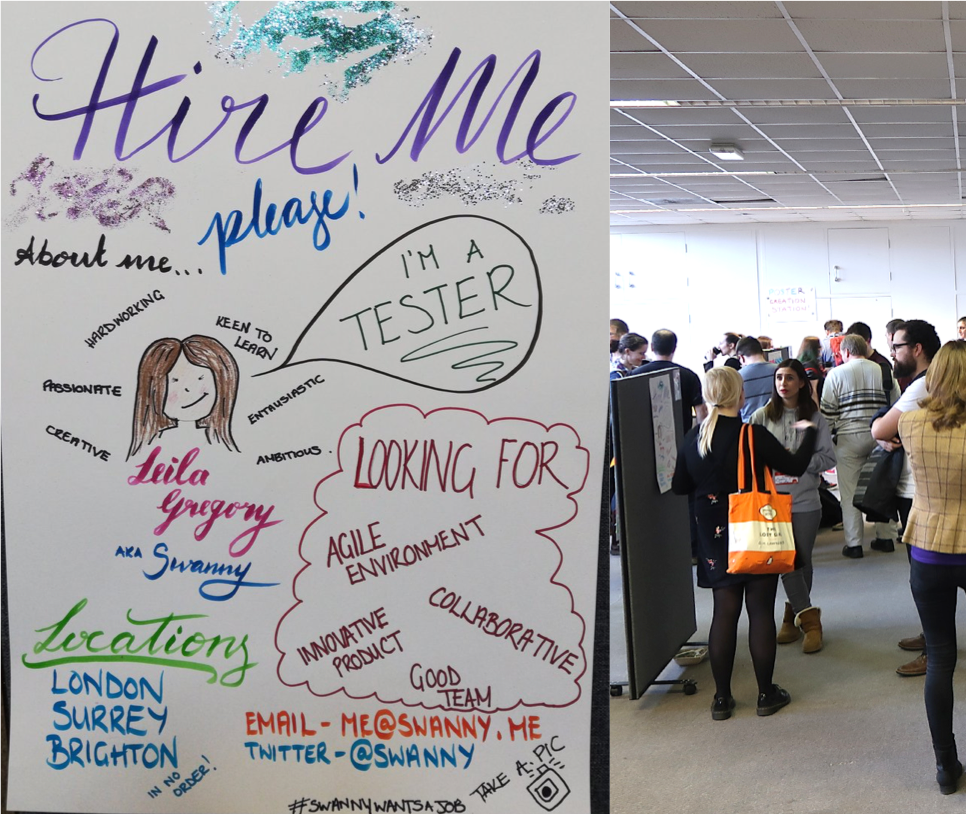 Hire Me
please!
About me...
I'M A
TESTER
HARDWORKING
KEEN TO
LEARN
PASSIONATE
ENTHUSIASTIC
CREATIVE
AMBITIOUS.
Leila
Gregory
AKA Swanny
LOOKING FOR
AGILE
ENVIRONMENT
COLLABORATIVE
INNOVATIVE
PRODUCT
GOOD
TEAM
Locations
LONDON
SURREY
BRIGHTON
IN NO
ORDER!
EMAIL - ME@SWANNY.ME
TWITTER - @SWANNY
TAKE A PIC
#SWANNYWANTSAJOB
STATION